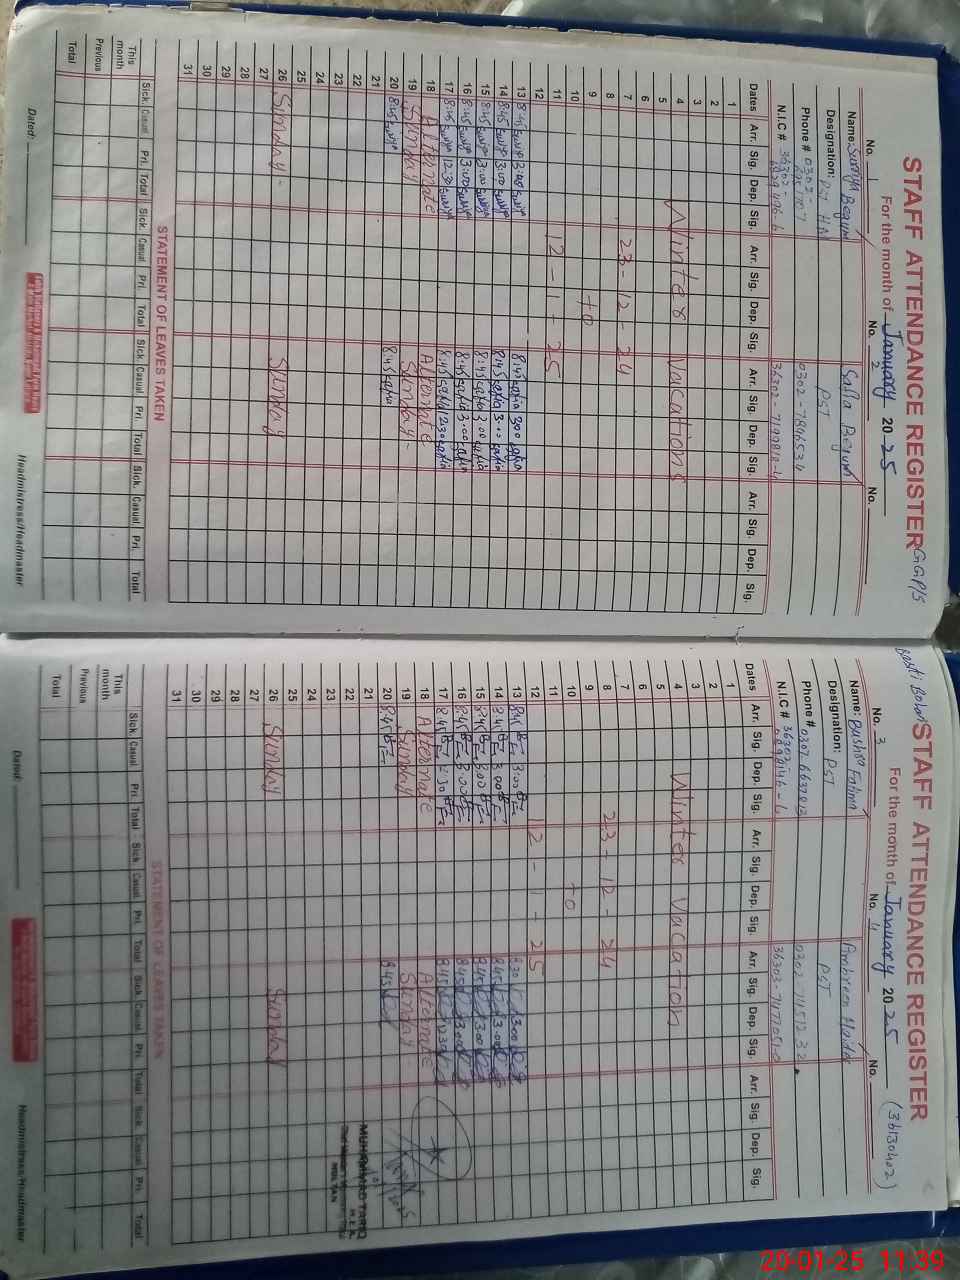 STAFF ATTENDANCE REGISTER G.G.P/S
For the month of January 2025
No. 1
No. 2
No.
Name: Surriya Begum
Safia Begum
Designation: PST HM
PST
Phone # 0303-
0302-7846534
N.I.C # 36302-
36302-7199818-4
Dates Arr. Sig. Dep. Sig. Arr. Sig. Dep. Sig. Arr. Sig. Dep. Sig. Arr. Sig. Dep. Sig.
1
2
3
4 Winter Vacations
5
6
7 23-12-24
8
9
10 to
11
12 12-1-25
13 8:45 3:00 8:45 safia 3:00 safia
14 8:45 3:00 8:45 safia 3:00 safia
15 8:45 3:00 8:45 safia 3:00 safia
16 8:45 3:00 8:45 safia 3:00 safia
17 8:45 12:30 8:45 safia 12:30 safia
18 Alternate Alternate
19 Sunday Sunday
20 8:45 8:45 safia
21
22
23
24
25
26 Sunday - Sunday
27
28
29
30
31
STATEMENT OF LEAVES TAKEN
Sick. Casual Pri. Total Sick. Casual Pri. Total Sick. Casual Pri. Total Sick. Casual Pri. Total
This month
Previous
Total
Dated:
Headmistress/Headmaster
Basti Bolan
STAFF ATTENDANCE REGISTER
For the month of January 2025 (36130402)
No. 3
No. 4
No.
Name: Bushra Fatima
Ambreen Haider
Designation: PST
PST
Phone # 0307-6637813
0302-7451232
N.I.C # 36302
36303-7477051-0
Dates Arr. Sig. Dep. Sig. Arr. Sig. Dep. Sig. Arr. Sig. Dep. Sig. Arr. Sig. Dep. Sig.
1
2
3
4 Winter Vacation
5
6
7
8 23-12-24
9
10 to
11
12 12-1-25
13 8:45 3:00 8:30 3:00
14 8:45 3:00 8:45 3:00
15 8:45 3:00 8:45 3:00
16 8:45 3:00 8:45 3:00
17 8:45 12:30 8:45 12:30
18 Alternate Alternate
19 Sunday Sunday
20 8:45 8:45
21
22
23
24
25
26 Sunday Sunday
27
28
29
30
31
MUHAMMAD TARIQ
M.E.A
MULTAN
STATEMENT OF LEAVES TAKEN
Sick. Casual Pri. Total Sick. Casual Pri. Total Sick. Casual Pri. Total Sick. Casual Pri. Total
This month
Previous
Total
Dated:
Headmistress/Headmaster
20-01-25 11:39